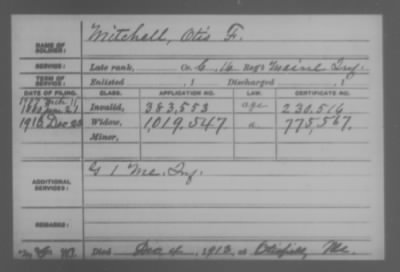 NAME OF SOLDIER: Mitchell, Otis F.
SERVICE: Late rank, Co. C, 16 Reg't Maine Inf.
TERM OF SERVICE: Enlisted , 1 Discharged , 1
DATE OF FILING. CLASS. APPLICATION NO. LAW. CERTIFICATE NO.
1880 Invalid, 383,553 age 230,516
1913 Dec Widow, 1,019,547 a 775,567
Minor,
ADDITIONAL SERVICES: G 1 Me. Inf.
REMARKS:
Died Dec , 1913, at Otisfield, Me.